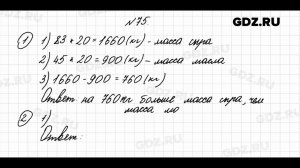 GDZ.RU
№75
① 1) 83 × 20 = 1660 (кг) - масса сыра
2) 45 × 20 = 900 (кг) - масса масла
3) 1660 - 900 = 760 (кг)
Ответ на 760кг больше масса сыра, чем
масса мо
② 1)
Ответ: